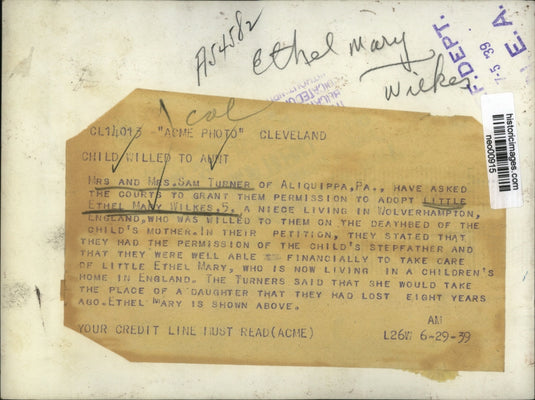 A54582
Ethel Mary
Wilkes
F. DEPT.
7-5 '39
E. A.
col
historicimages.com
neo00915
CL14013 "ACME PHOTO" CLEVELAND
CHILD WILLED TO AUNT
MRS AND MRS. SAM TURNER OF ALIQUIPPA, PA., HAVE ASKED
THE COURTS TO GRANT THEM PERMISSION TO ADOPT LITTLE
ETHEL MARY WILKES, 5, A NIECE LIVING IN WOLVERHAMPTON,
ENGLAND, WHO WAS WILLED TO THEM ON THE DEATHBED OF THE
CHILD'S MOTHER. IN THEIR PETITION, THEY STATED THAT
THEY HAD THE PERMISSION OF THE CHILD'S STEPFATHER AND
THAT THEY WERE WELL ABLE FINANCIALLY TO TAKE CARE
OF LITTLE ETHEL MARY, WHO IS NOW LIVING IN A CHILDREN'S
HOME IN ENGLAND. THE TURNERS SAID THAT SHE WOULD TAKE
THE PLACE OF A DAUGHTER THAT THEY HAD LOST EIGHT YEARS
AGO. ETHEL MARY IS SHOWN ABOVE.
AM
YOUR CREDIT LINE MUST READ (ACME) L26W 6-29-39